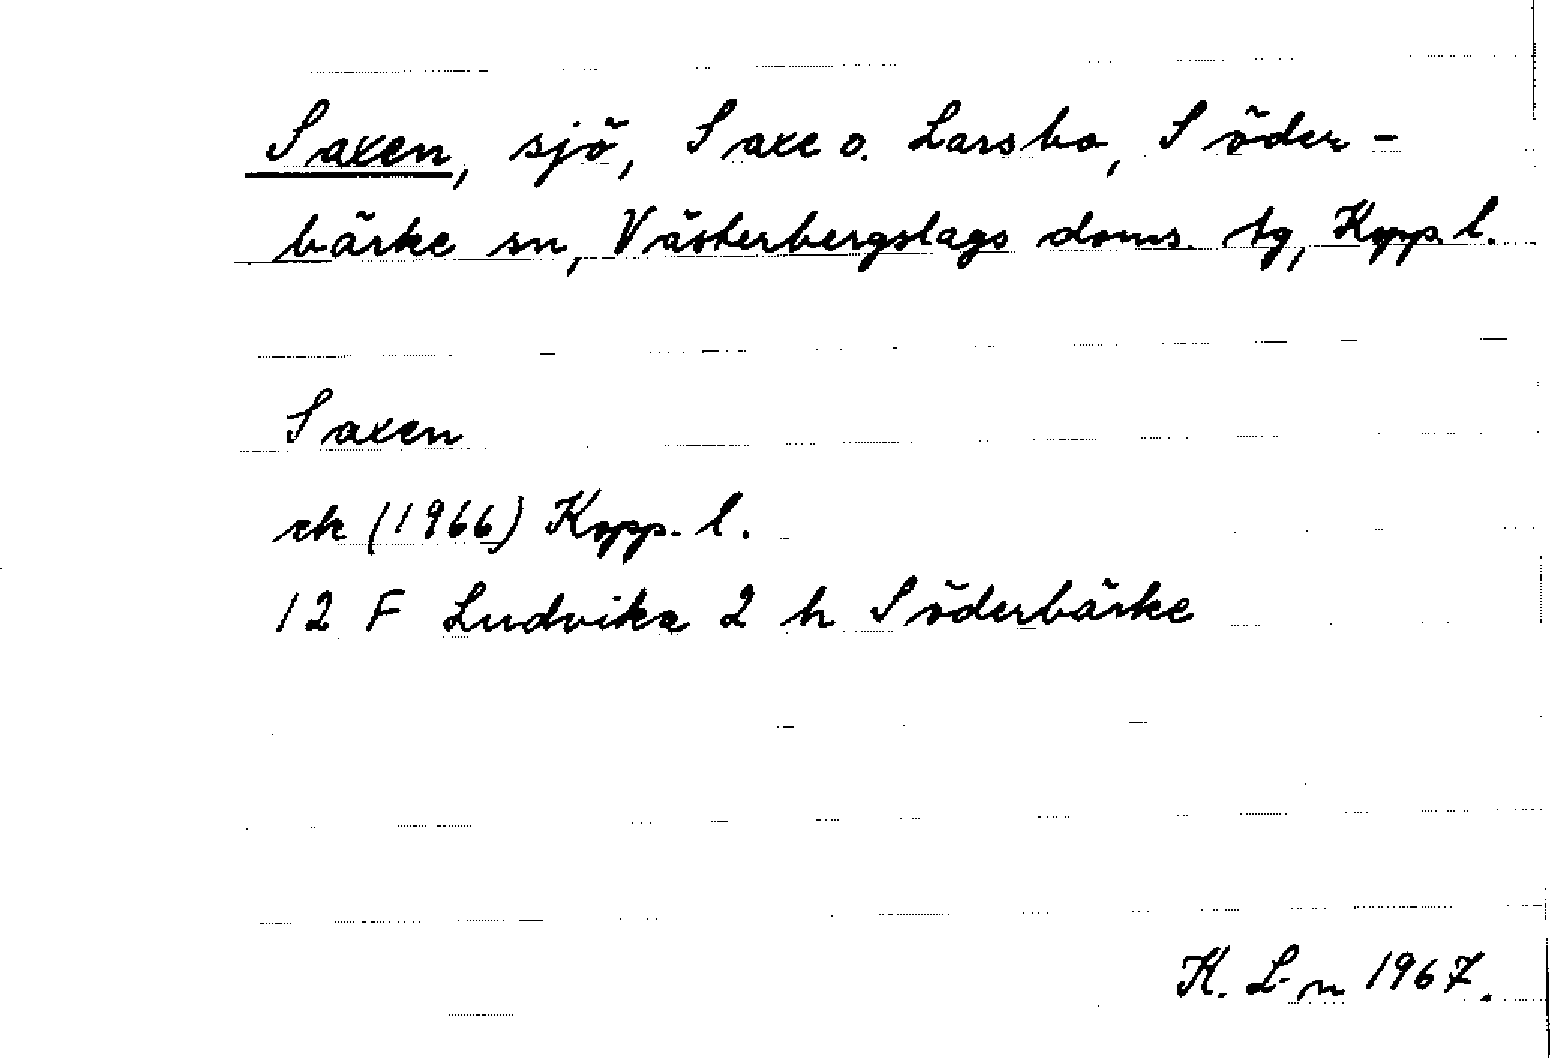 Saxen, sjö, Saxe o. Larsbo, Söder-
bärke sn, Västerbergslags doms. tg, Kopp. l.
Saxen
rk (1966) Kopp. l.
12 F Ludvika 2 h Söderbärke
K. L-n 1967.